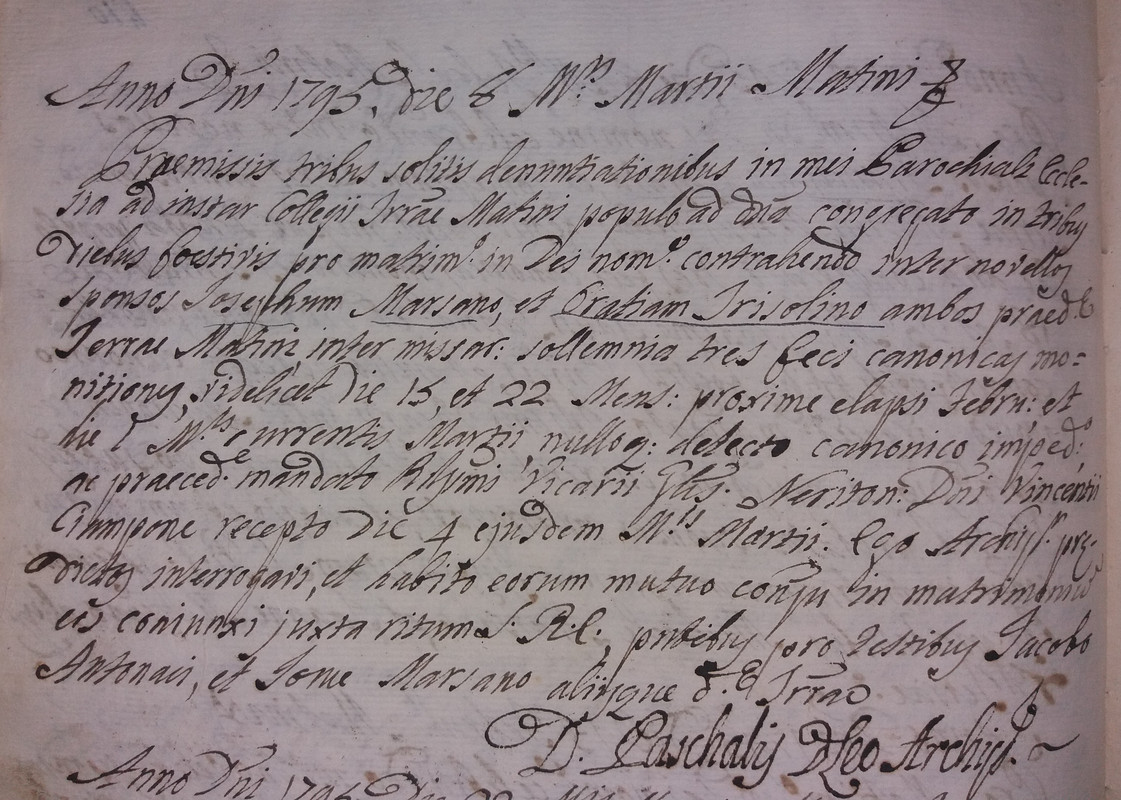 Anno Dni 1795, die 8 M.is Martii Matini
Praemissis tribus solitis denuntiationibus in mei Parochiali Eccle-
sia ad instar Collegii Trrae Matini populo ad divina congregato in tribus
diebus foestivis pro matrim.o in Dei nom.e contrahendo inter novellos
sponsos Josephum Marsano, et Gratiam Trisolino ambos praed.e
Terrae Matini inter missar: sollemnia tres feci canonicas mo=
nitiones, videlicet die 15, et 22 Mens: proxime elapsi Febru: et
die 1 M.is currentis Martii, nulloq: detecto canonico imped.o
ac praeced.e mandato Rmi Vicarii Neriton: Dni Vincentii
Ciampone recepto die 4 ejusdem M.is Martii. Ego Archip. prae-
dictos interrogavi, et habito eorum mutuo consu in matrimoniu
eos coniunxi juxta ritum S. R. E., pntibus pro testibus Jacobo
Antonaci, et Marsano aliisque d.ae Trrae
D. Paschalis Archip.
Anno Dni 1795 Die